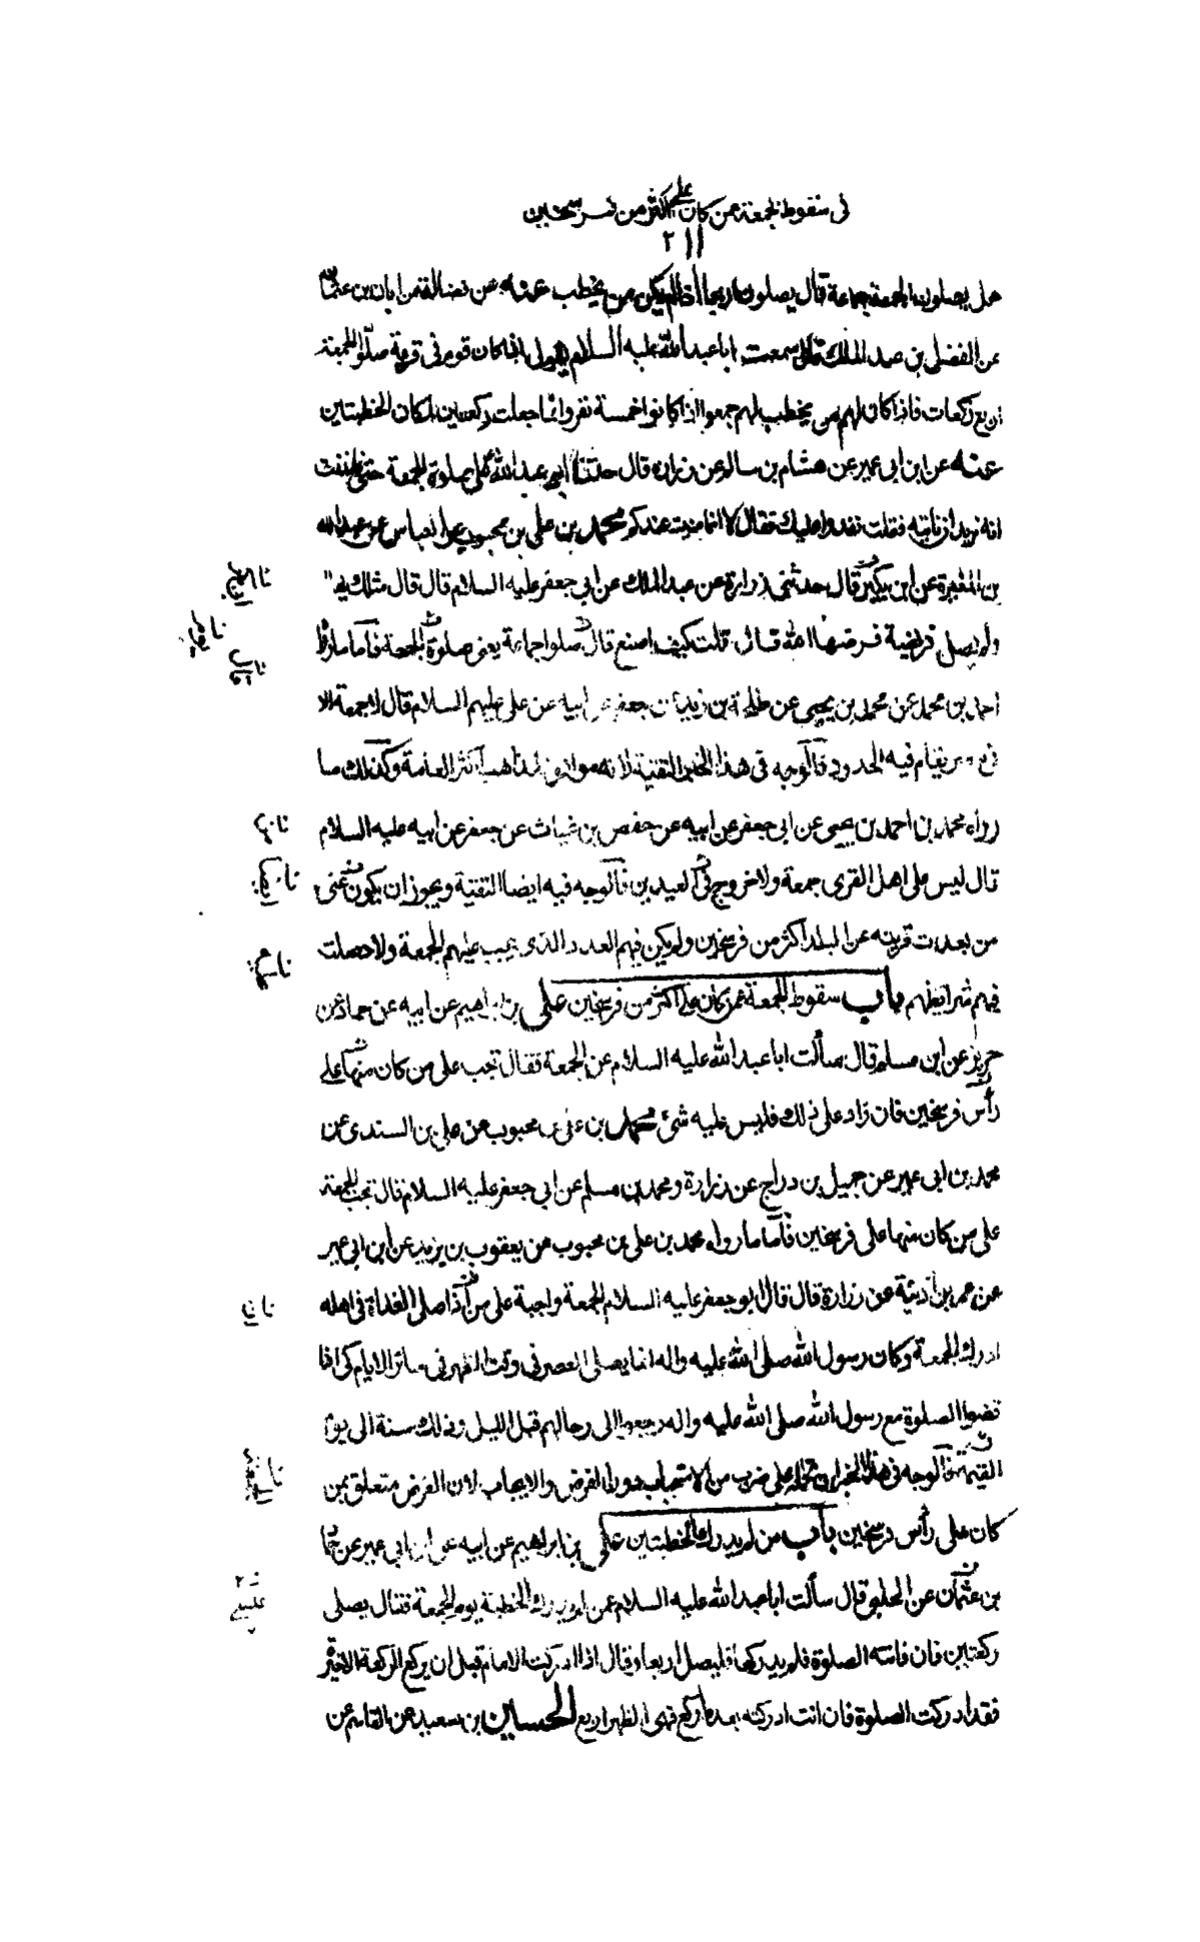 فى سقوط الجمعة عمن كان على اكثر من فرسخين
٢١١
هل يصلون الجمعة جماعة قال يصلون اربعا اذا لم يكن من يخطب عنه عن فضالة عن ابان بن عثمان
عن الفضل بن عبد الملك قال سمعت ابا عبد الله عليه السلام يقول اذا كان قوم فى قرية صلوا الجمعة
اربع ركعات فاذا كان لهم من يخطب لهم جمعوا اذا كانوا خمسة نفر وانما جعلت ركعتين لمكان الخطبتين
عنه عن ابن ابى عمير عن هشام بن سالم عن زرارة قال حثنا ابو عبد الله على صلوة الجمعة حتى ظننت
انه يريد ان ناتيه فقلت نغدو عليك فقال لا انما عنيت عندكم محمد بن على بن محبوب عن العباس عن عبد الله
بن المغيرة عن ابن بكير قال حدثنى زرارة عن عبد الملك عن ابى جعفر عليه السلام قال قال مثلك
ولم يصل فريضة فرضها الله قال قلت كيف اصنع قال صلوا جماعة يعنى صلوة الجمعة فاما ما رواه
احمد بن محمد عن محمد بن يحيى عن طلحة بن زيد عن جعفر عن ابيه عن على عليهم السلام قال لا جمعة الا
فى مصر يقام فيه الحدود فالوجه فى هذا الخبر التقية لانه موافق لمذاهب اكثر العامة وكذلك ما
رواه محمد بن احمد بن يحيى عن ابى جعفر عن ابيه عن حفص بن غياث عن جعفر عن ابيه عليه السلام
قال ليس على اهل القرى جمعة ولا خروج فى العيدين فالوجه فيه ايضا التقية ويجوز ان يكون عنى
من بعدت قريته عن البلد اكثر من فرسخين ولم يكن فيهم العدد الذى يجب عليهم الجمعة ولا حصلت
فيهم شرايطهم باب سقوط الجمعة عمن كان على اكثر من فرسخين على بن ابراهيم عن ابيه عن حماد عن
حريز عن ابن مسلم قال سألت ابا عبد الله عليه السلام عن الجمعة فقال تجب على من كان منها على
رأس فرسخين فان زاد على ذلك فليس عليه شئ محمد بن على بن محبوب عن على بن السندى عن
محمد بن ابى عمير عن جميل بن دراج عن زرارة ومحمد بن مسلم عن ابى جعفر عليه السلام قال تجب الجمعة
على من كان منها على فرسخين فاما ما رواه محمد بن على بن محبوب عن يعقوب بن يزيد عن ابن ابى عمير
عن عمر بن اذينة عن زرارة قال قال ابو جعفر عليه السلام الجمعة واجبة على من اذا صلى الغداة فى اهله
ادرك الجمعة وكان رسول الله صلى الله عليه واله انما يصلى العصر فى وقت الظهر فى سائر الايام كى اذا
قضوا الصلوة مع رسول الله صلى الله عليه واله رجعوا الى رحالهم قبل الليل وذلك سنة الى يوم
القيمة فالوجه فى هذا الخبر ان نحمله على ضرب من الاستحباب دون الفرض والايجاب لان الفرض متعلق بمن
كان على رأس فرسخين باب من لم يدرك الخطبتين على بن ابراهيم عن ابيه عن ابن ابى عمير عن حماد
بن عثمان عن الحلبى قال سألت ابا عبد الله عليه السلام عمن لم يدرك الخطبة يوم الجمعة فقال يصلى
ركعتين فان فاتته الصلوة فلم يدركها فليصل اربعا وقال اذا ادركت الامام قبل ان يركع الركعة الاخيرة
فقد ادركت الصلوة فان انت ادركته بعد ما ركع فهى الظهر اربع الحسين بن سعيد عن القاسم عن